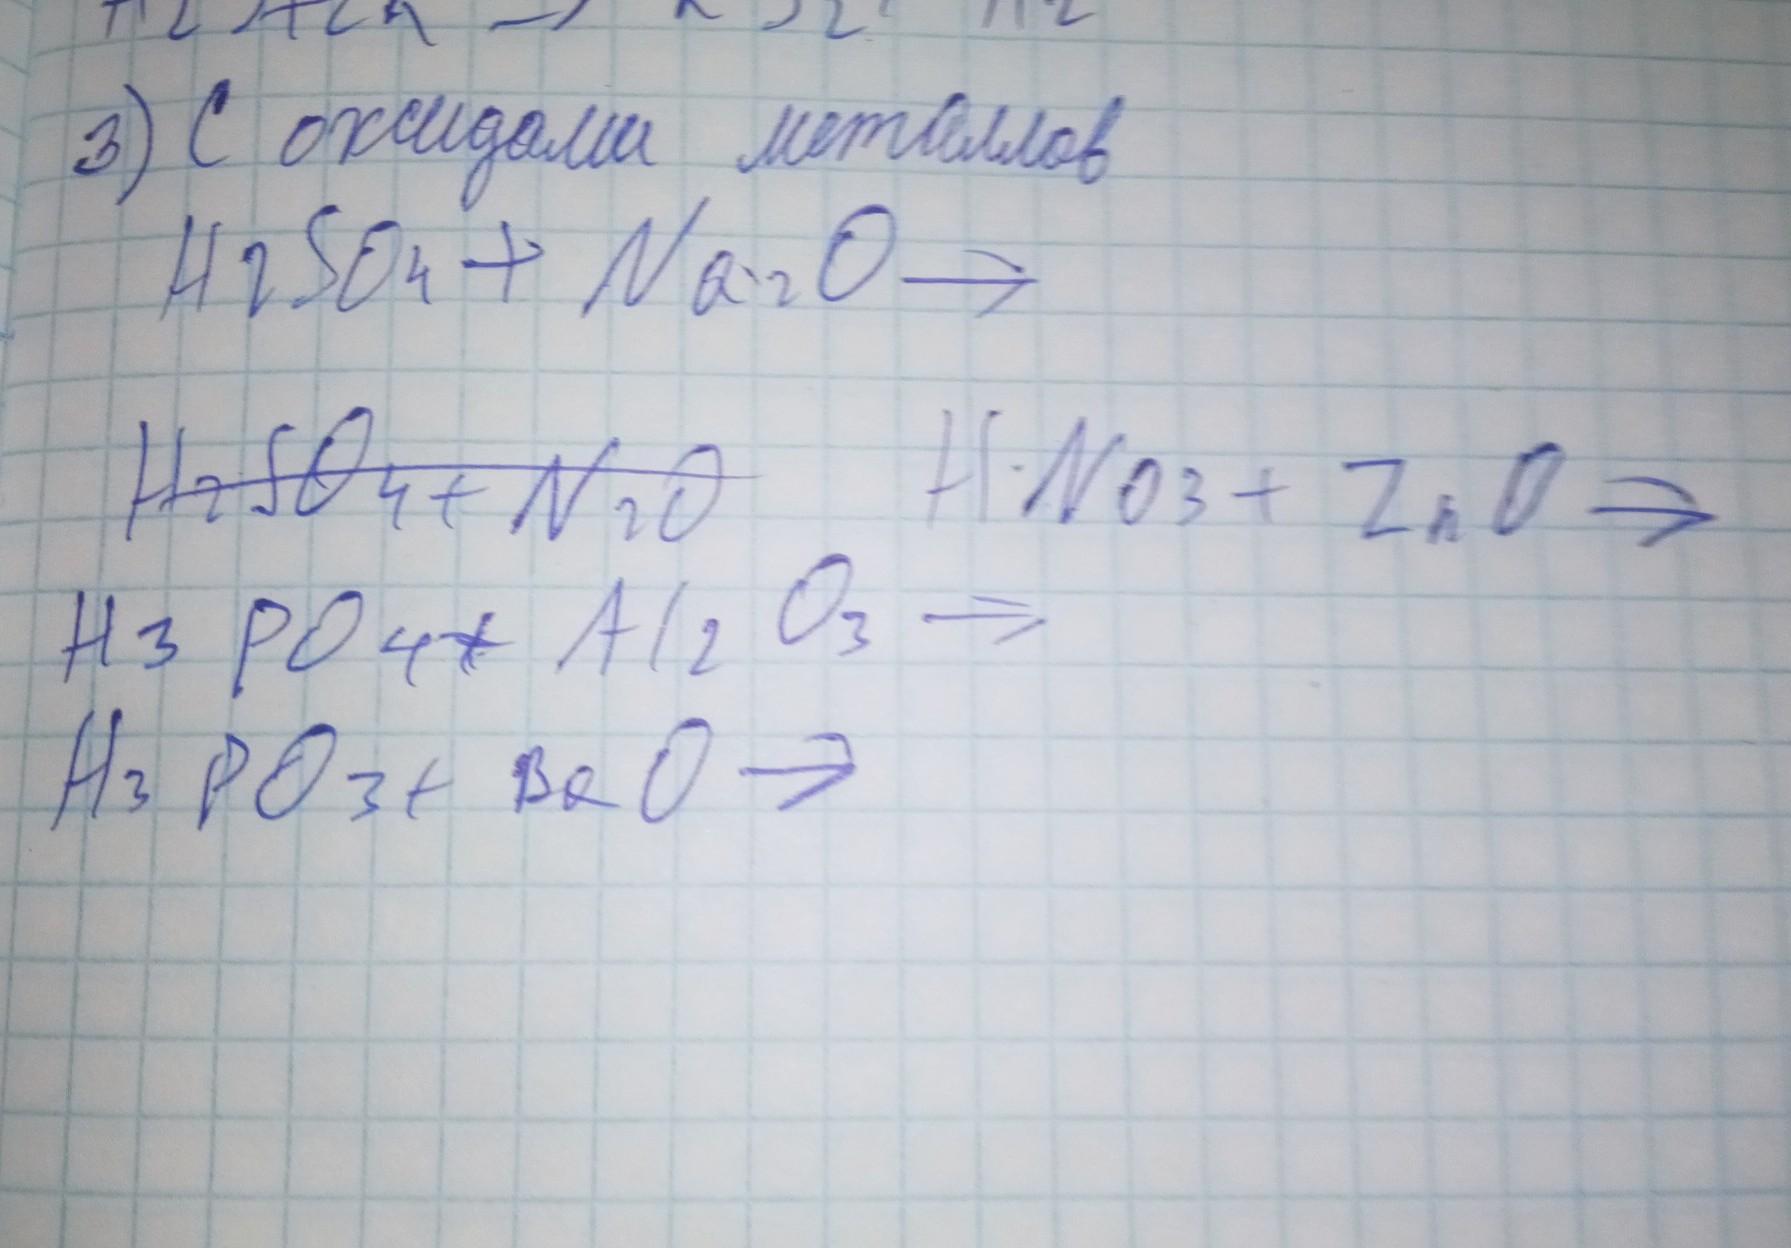 3) С оксидами металлов
H2SO4 + Na2O →
H2SO4 + N2O HNO3 + ZnO →
H3PO4 + Al2O3 →
H3PO3 + BaO →